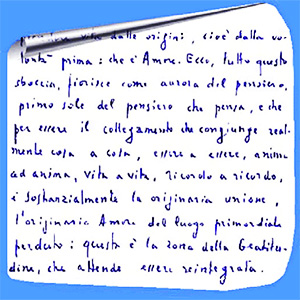 vita dalle origini, cioè dalla vo-
lontà prima: che è Amore. Ecco, tutto questo
sboccia, fiorisce come aurora del pensiero,
primo sole del pensiero che pensa, e che
per essere il collegamento che congiunge real-
mente cosa a cosa, essere a essere, anima
ad anima, vita a vita, ricordo a ricordo,
è sostanzialmente la originaria unione,
l'originario Amore del luogo primordiale
perduto: questa è la zona della Beatitu-
dine, che attende essere reintegrata.